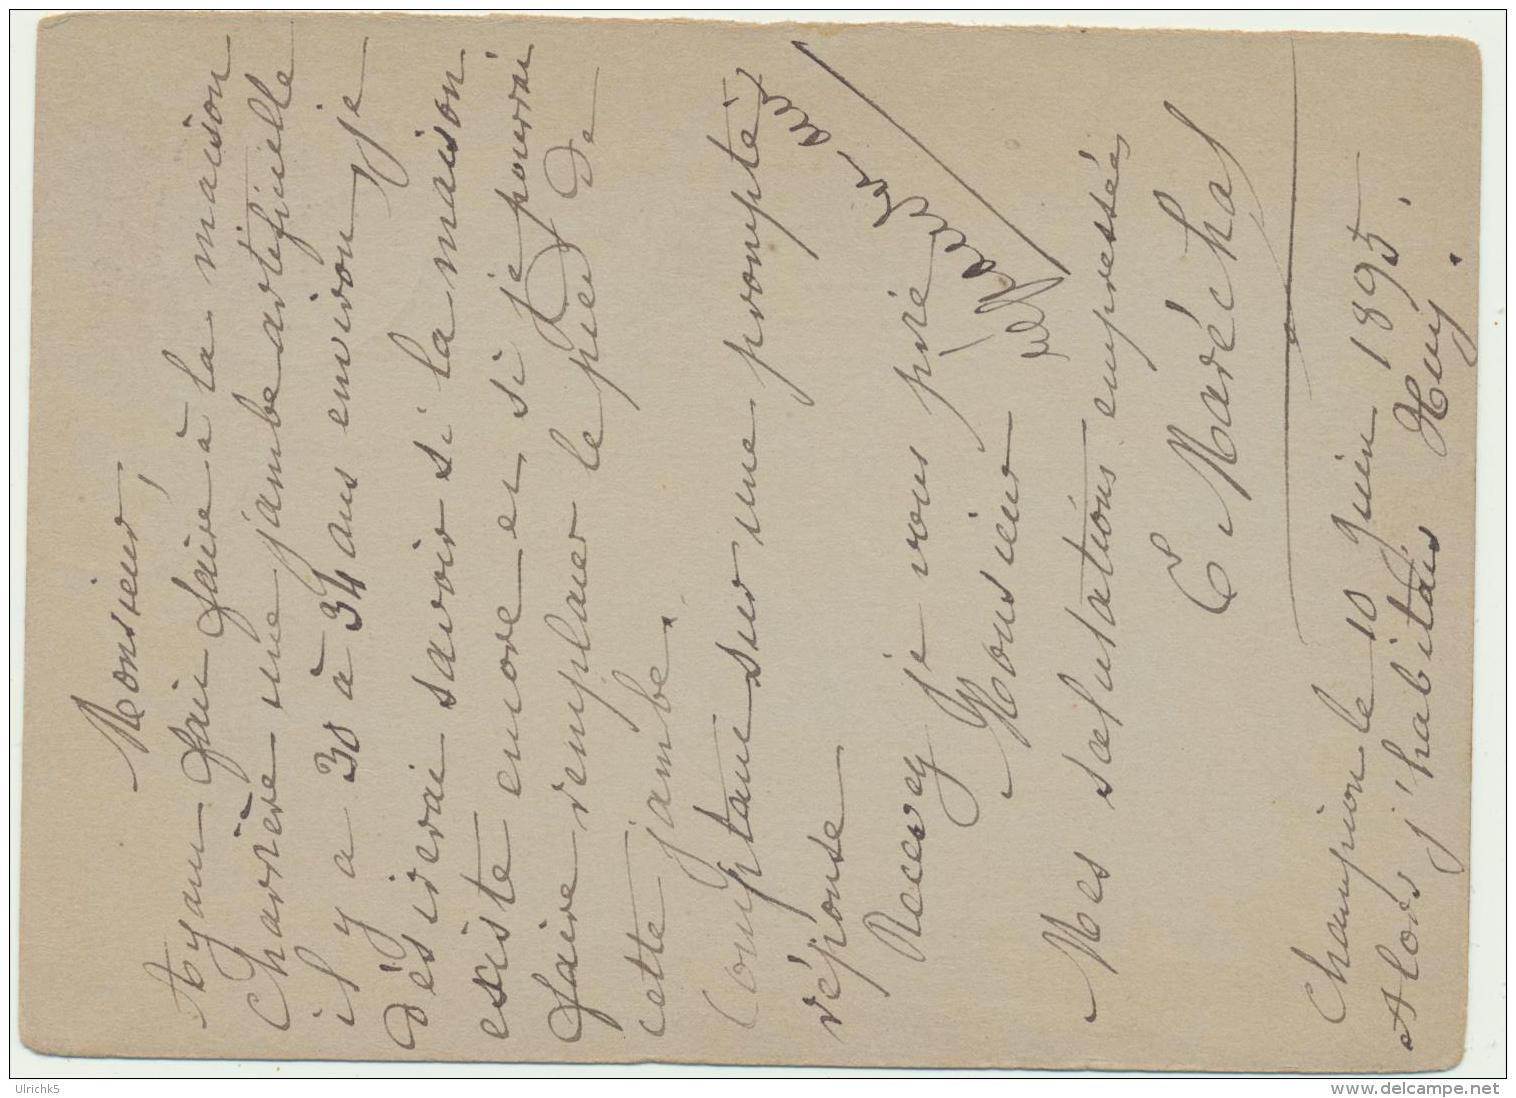 Monsieur,
Ayant fait faire à la maison
Charrière une jambe artificielle
il y a 30 à 34 ans environ je
désirerai savoir si la maison
existe encore et si je pourrai
faire remplacer le pied de
cette jambe.
Comptant sur une prompte
réponse
Recevez je vous prie
Monsieur
Mes salutations empressées
E Maréchal
Champion le 10 Juin 1895.
Alors j'habitais Huy.
Ulrichk5
www.delcampe.net